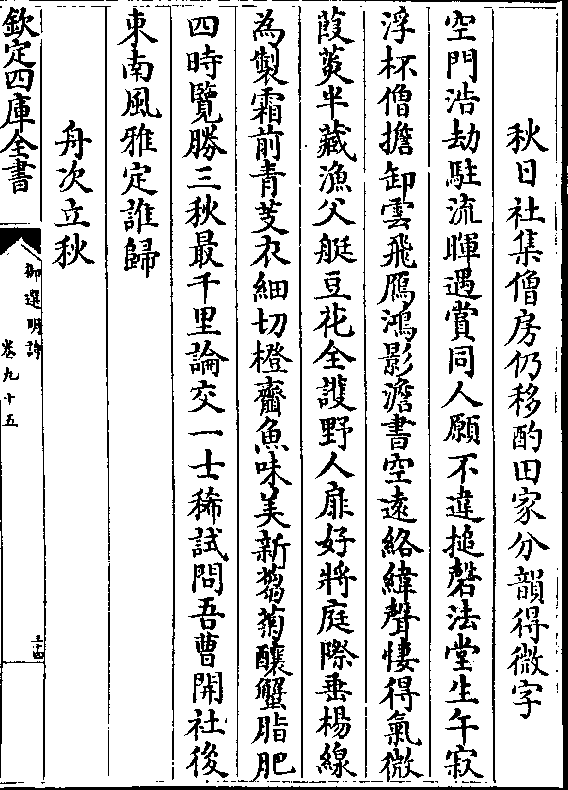 秋日社集僧房仍移酌田家分韻得微字
空門浩劫駐流暉遇賞同人願不違搥磬法堂生午寂
浮杯僧擔卸雲飛鴈鴻影澹書空遠絡緯聲悽得氣微
葭葵半藏漁父艇豆花全護野人扉好將庭際垂楊線
為製霜前青芰衣細切橙虀魚味美新篘菊釀蟹脂肥
四時覽勝三秋最千里論交一士稀試問吾曹開社後
東南風雅定誰歸
舟次立秋
欽定四庫全書
御選明詩
卷九十五
三十四